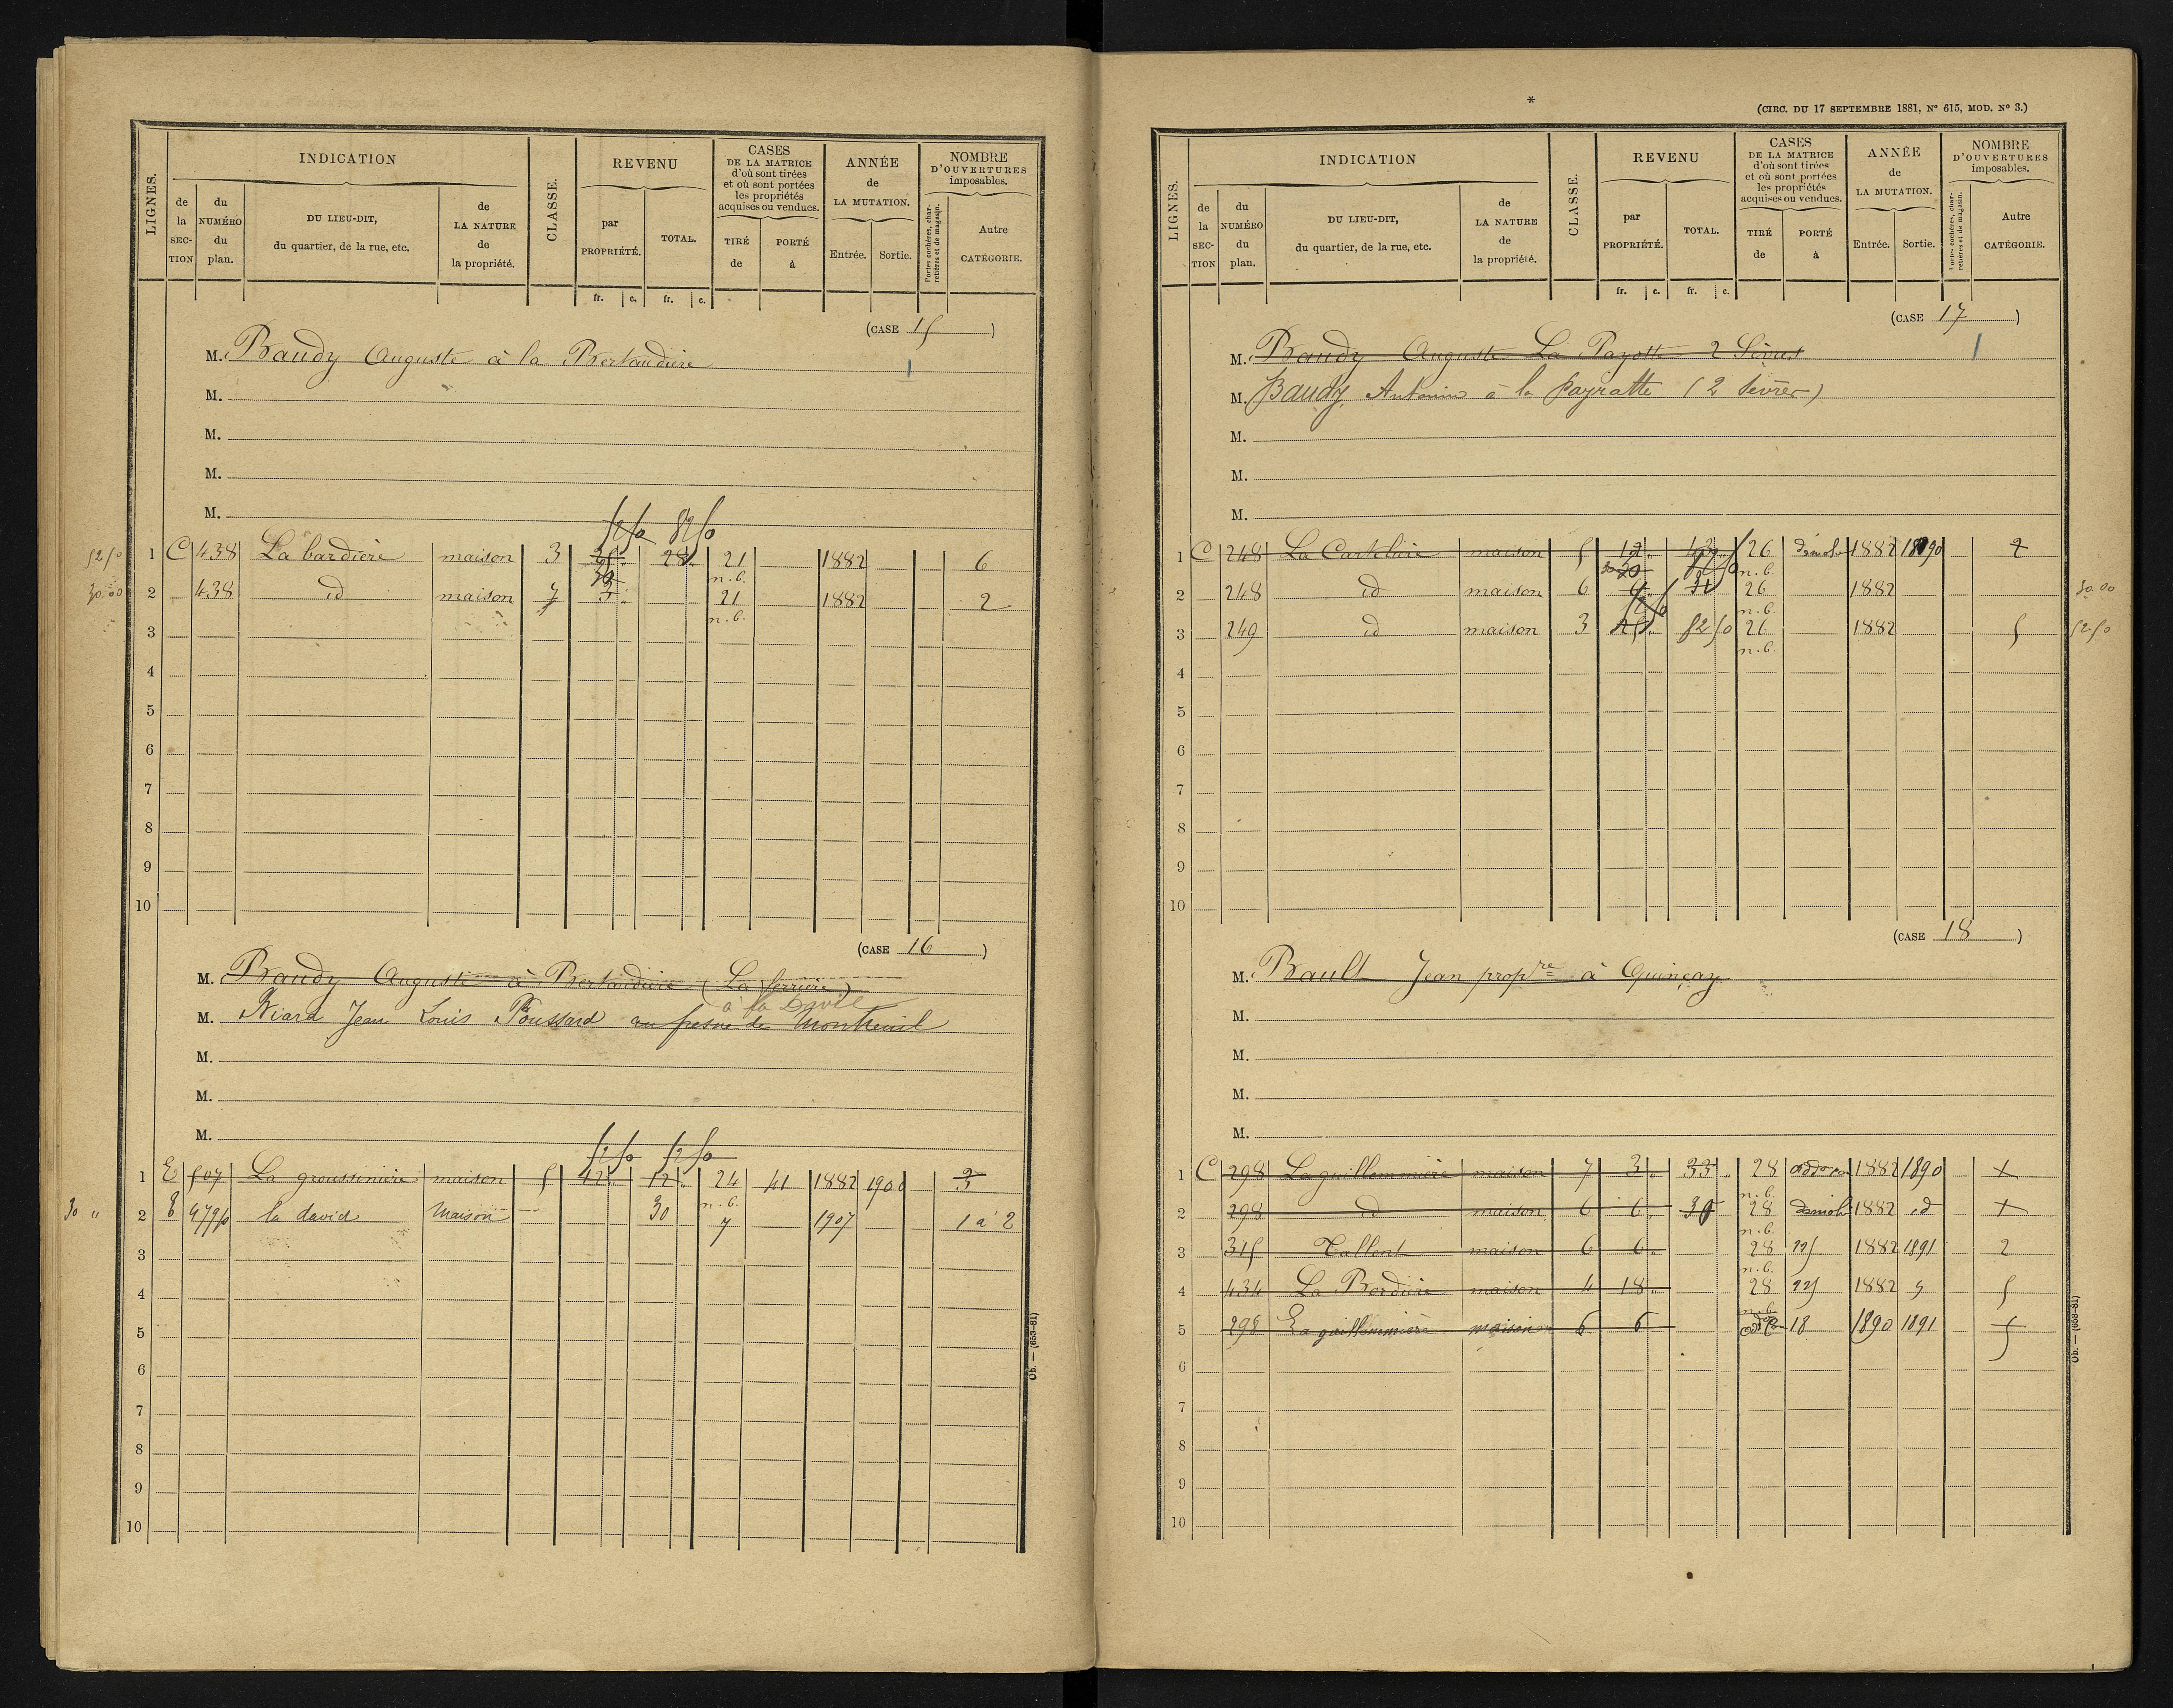 LIGNES.
INDICATION
de la SECTION
du NUMÉRO du plan.
DU LIEU-DIT, du quartier, de la rue, etc.
de LA NATURE de la propriété.
CLASSE.
REVENU
par PROPRIÉTÉ.
TOTAL.
fr. c. fr. c.
CASES DE LA MATRICE d'où sont tirées et où sont portées les propriétés acquises ou vendues.
TIRÉ de
PORTÉ à
ANNÉE de LA MUTATION.
Entrée. Sortie.
NOMBRE D'OUVERTURES imposables.
Portes cochères, charretières et de magasin.
Autre CATÉGORIE.
(CASE 15)
M. Baudy Auguste à la Bertaudière
1
M.
M.
M.
M.
52 50 1 C 438 La bardière maison 3 28 21 n.b. 1882 6
30.00 2 438 id maison 7 3 21 n.b. 1882 2
3
4
5
6
7
8
9
10
(CASE 16)
M. Baudy Auguste à Bertaudière (La ferrière)
à la David
M. Niard Jean Louis Poussard au fresne de Montreuil
M.
M.
M.
1 E 507 La groussinière maison 5 12 12 24 n.b. 41 1882 1900 3
30 " 2 E 479p la david Maison 30 7 1907 1 à 2
3
4
5
6
7
8
9
10
Ob. — (653-81)
*
(CIRC. DU 17 SEPTEMBRE 1881, N° 615, MOD. N° 3.)
LIGNES.
INDICATION
de la SECTION
du NUMÉRO du plan.
DU LIEU-DIT, du quartier, de la rue, etc.
de LA NATURE de la propriété.
CLASSE.
REVENU
par PROPRIÉTÉ.
TOTAL.
fr. c. fr. c.
CASES DE LA MATRICE d'où sont tirées et où sont portées les propriétés acquises ou vendues.
TIRÉ de
PORTÉ à
ANNÉE de LA MUTATION.
Entrée. Sortie.
NOMBRE D'OUVERTURES imposables.
Portes cochères, charretières et de magasin.
Autre CATÉGORIE.
(CASE 17)
M. Baudy Auguste La Payotte 2 Sèvres
1
M. Baudy Antonin à la Payratte (2 Sèvres)
M.
M.
M.
1 C 248 La Cartelière maison 5 12 43 26 n.b. démoli 1882 1890 2
2 248 id maison 6 6 31 26 n.b. 1882 30.00
3 249 id maison 3 25 52 50 26 n.b. 1882 5 52 50
4
5
6
7
8
9
10
(CASE 18)
M. Bault Jean propre à Quinçay
M.
M.
M.
M.
1 C 298 La guillemmière maison 7 3 33 28 n.b. 1882 1890
2 298 id maison 6 6 30 28 n.b. démoli 1882 id
3 315 Tallent maison 6 6 28 n.b. 1882 1891 2
4 434 La Bordière maison 4 18 28 n.b. 1882 5
5 298 La guillemmière maison 6 6 18 1890 1891
6
7
8
9
10
Ob. — (653-81)